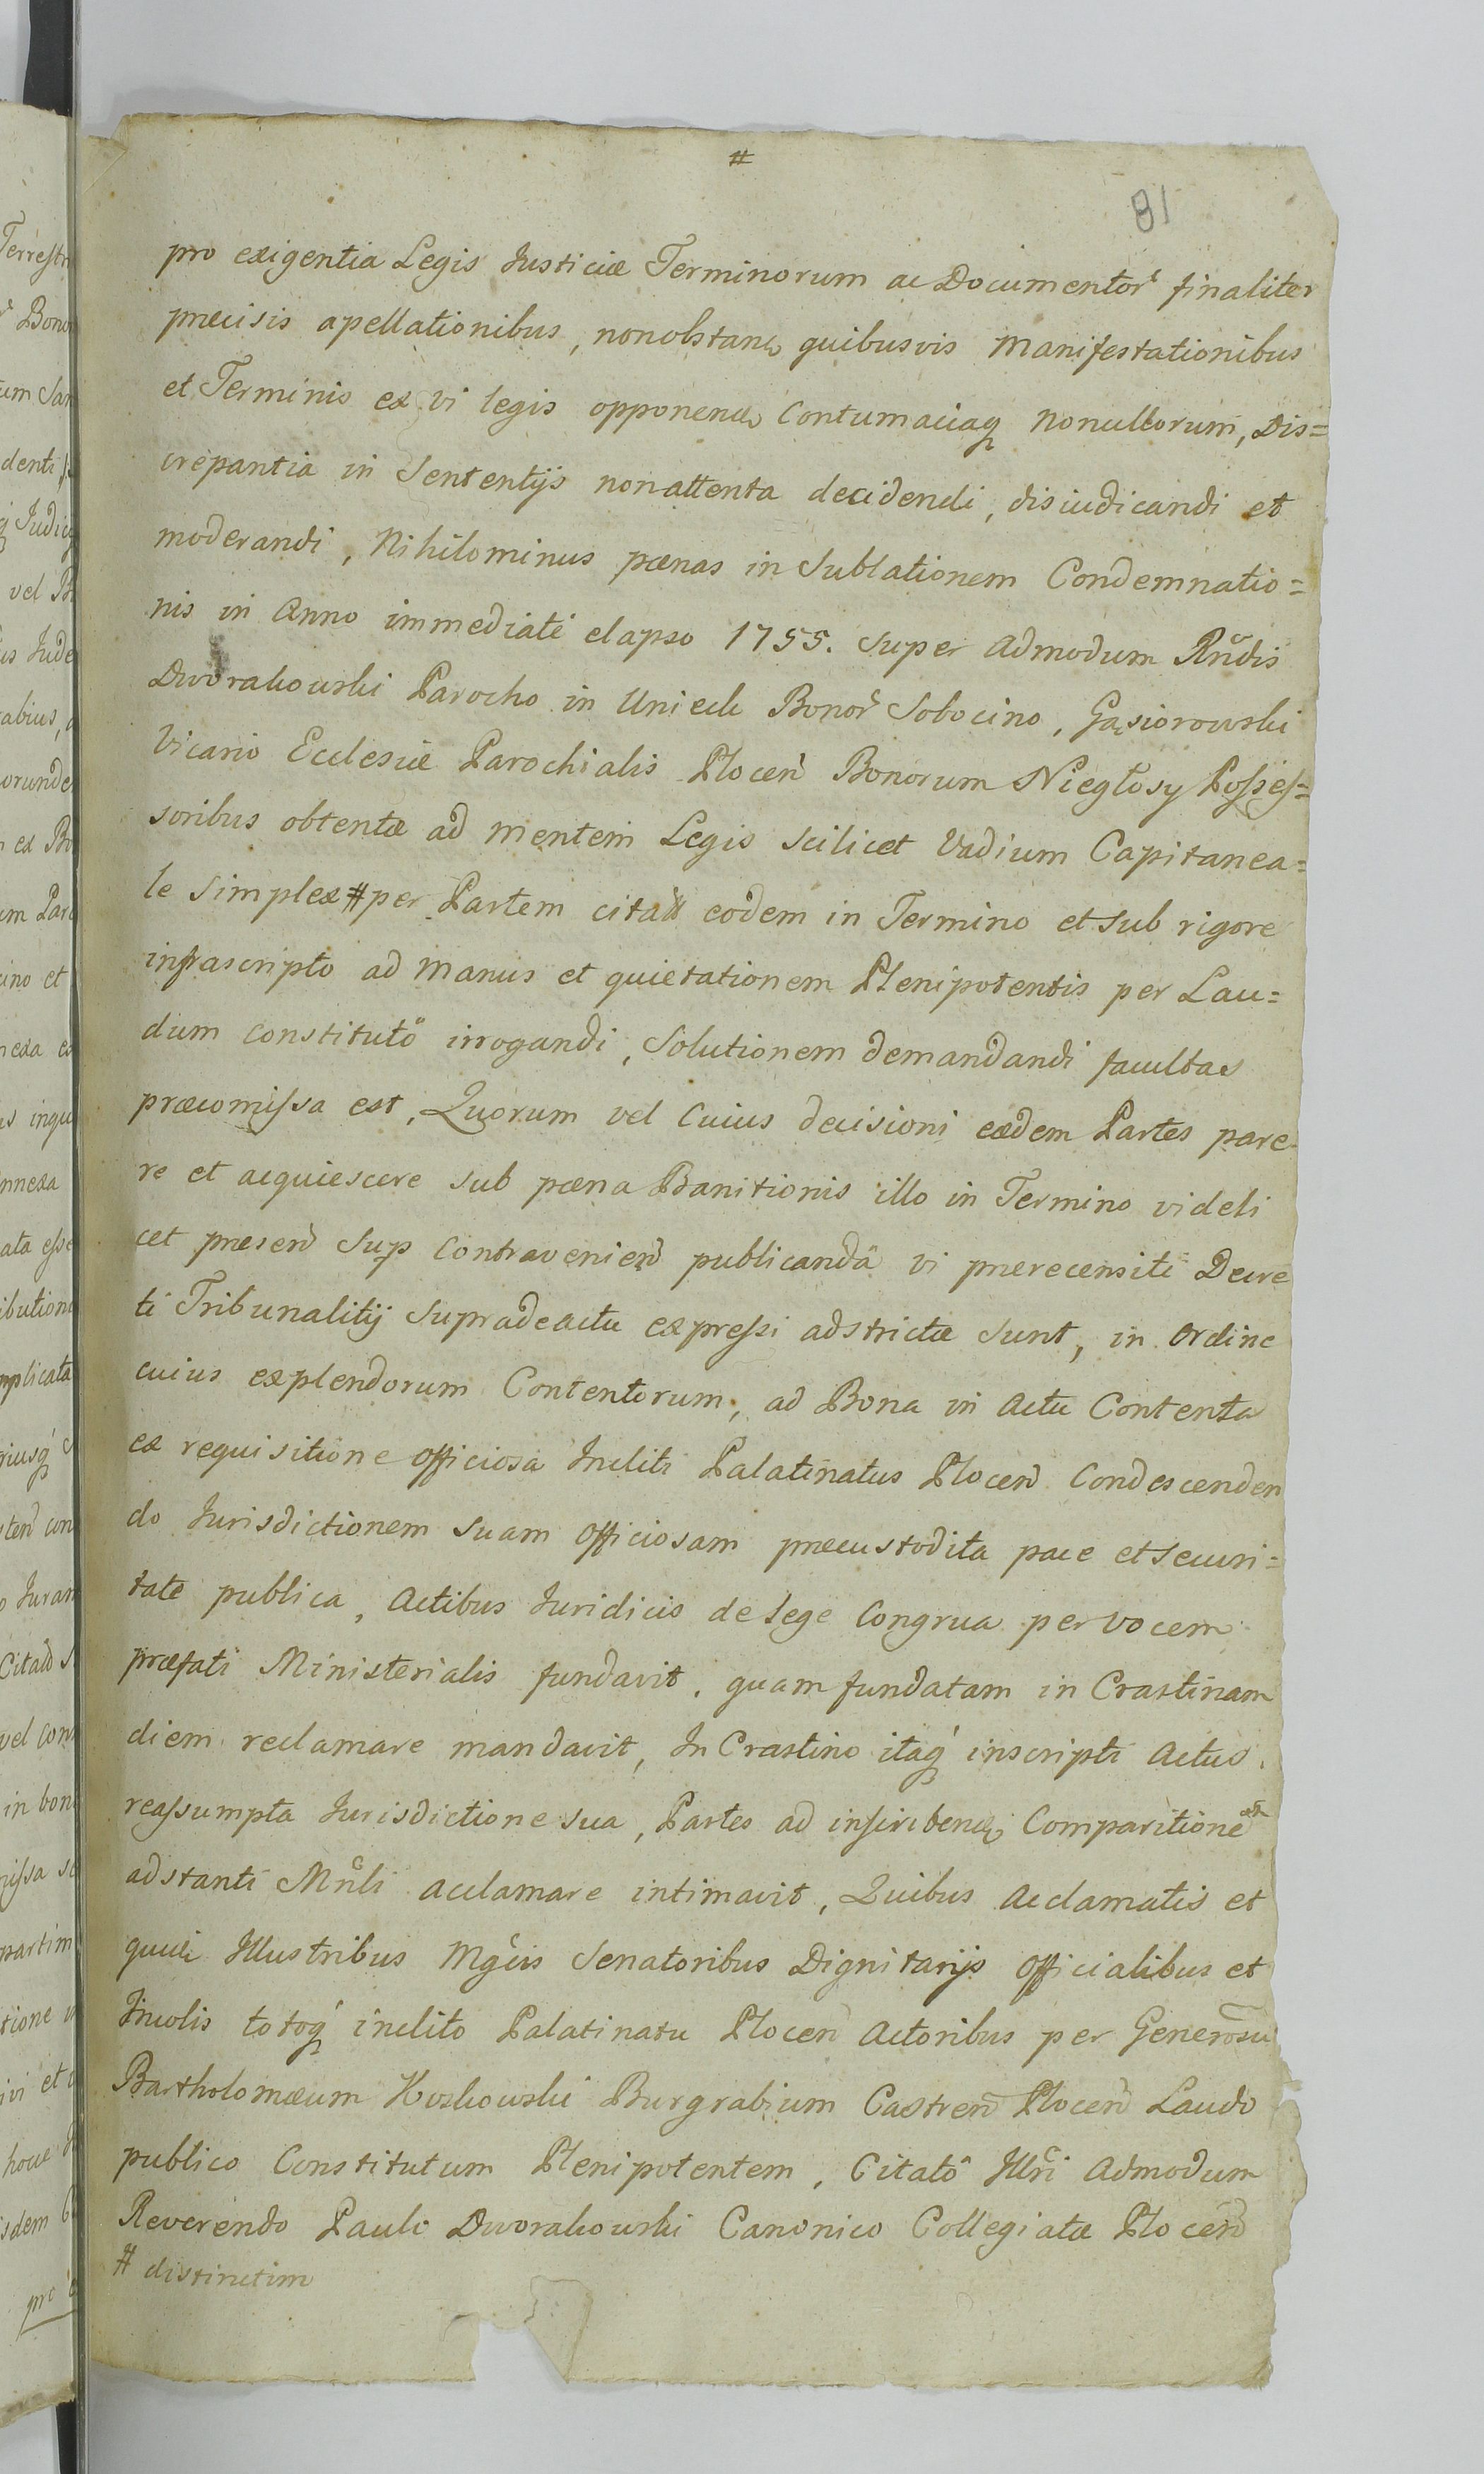 #
81
pro exigentia Legis Iusticiæ Terminorum ac Documentor̃ finaliter
præcisis apellationibus, nonobstan͂ quibusvis Manifestationibus
et Terminis ex vi legis opponen͂ Contumaciaq̃ Nonullorum, Dis=
crepantia in Sententijs nonattenta decidendi, disiudicandi et
moderandi, Nihilominus pœnas in Sublationem Condemnatio=
nis in Anno immediatè elapso 1755. Super Admodum Rñdis
Dworakowski Parocho in Unieck Bonor̃ Sobocino, Gąsiorowski
Vicario Ecclesiæ Parochialis Plocen̄ Bonorum Niegłosy Possess=
soribus obtentæ ad mentem Legis scilicet Vadium Capitanea=
le Simplex # per Partem citat̃ eodem in Termino et sub rigore
infrascripto ad manus et quietationem Plenipotentis per Lau=
dum constitutô irrogandi, Solutionem demandandi facultas
præcomissa est, Quorum vel Cuius decisioni eædem Partes pare
re et acquiescere sub pœna Banitionis illo in Termino videli
cet præsen̄ Sup Contravenien̄ publicandâ vi prærecensiti Decre
ti Tribunalitij supradeactu expressi adstrictæ sunt, in Ordine
cuius explendorum Contentorum, ad Bona in Actu Contenta
ex requisitione officiosa Incliti Palatinatus Plocen̄ Condescenden
do Iurisdictionem suam officiosam præcustodita pace et securi=
tate publica, Actibus Iuridicis de lege Congrua per vocem
præfati Ministerialis fundavit, quam fundatam in Crastinam
diem reclamare mandavit, In Crastino itaq̃ inscripti Actus
reassumpta Iurisdictione sua, Partes ad inscriben͂ Comparitionē
adstanti Mñli acclamare intimavit, Quibus Acclamatis et
Illustribus Mgcis Senatoribus Dignitarijs Officialibus et
Incolis totoq̃ inclito Palatinatu Plocen̄ Actoribus per Generosū
Bartholomæum Koskowski Burgrabium Castren̄ Plocen̄ Laudo
publico Constitutum Plenipotentem, Citatô Illr̃i Admodum
Reverendo Paulo Dworakowski Canonico Collegiatæ Plocen̄
# distinctim